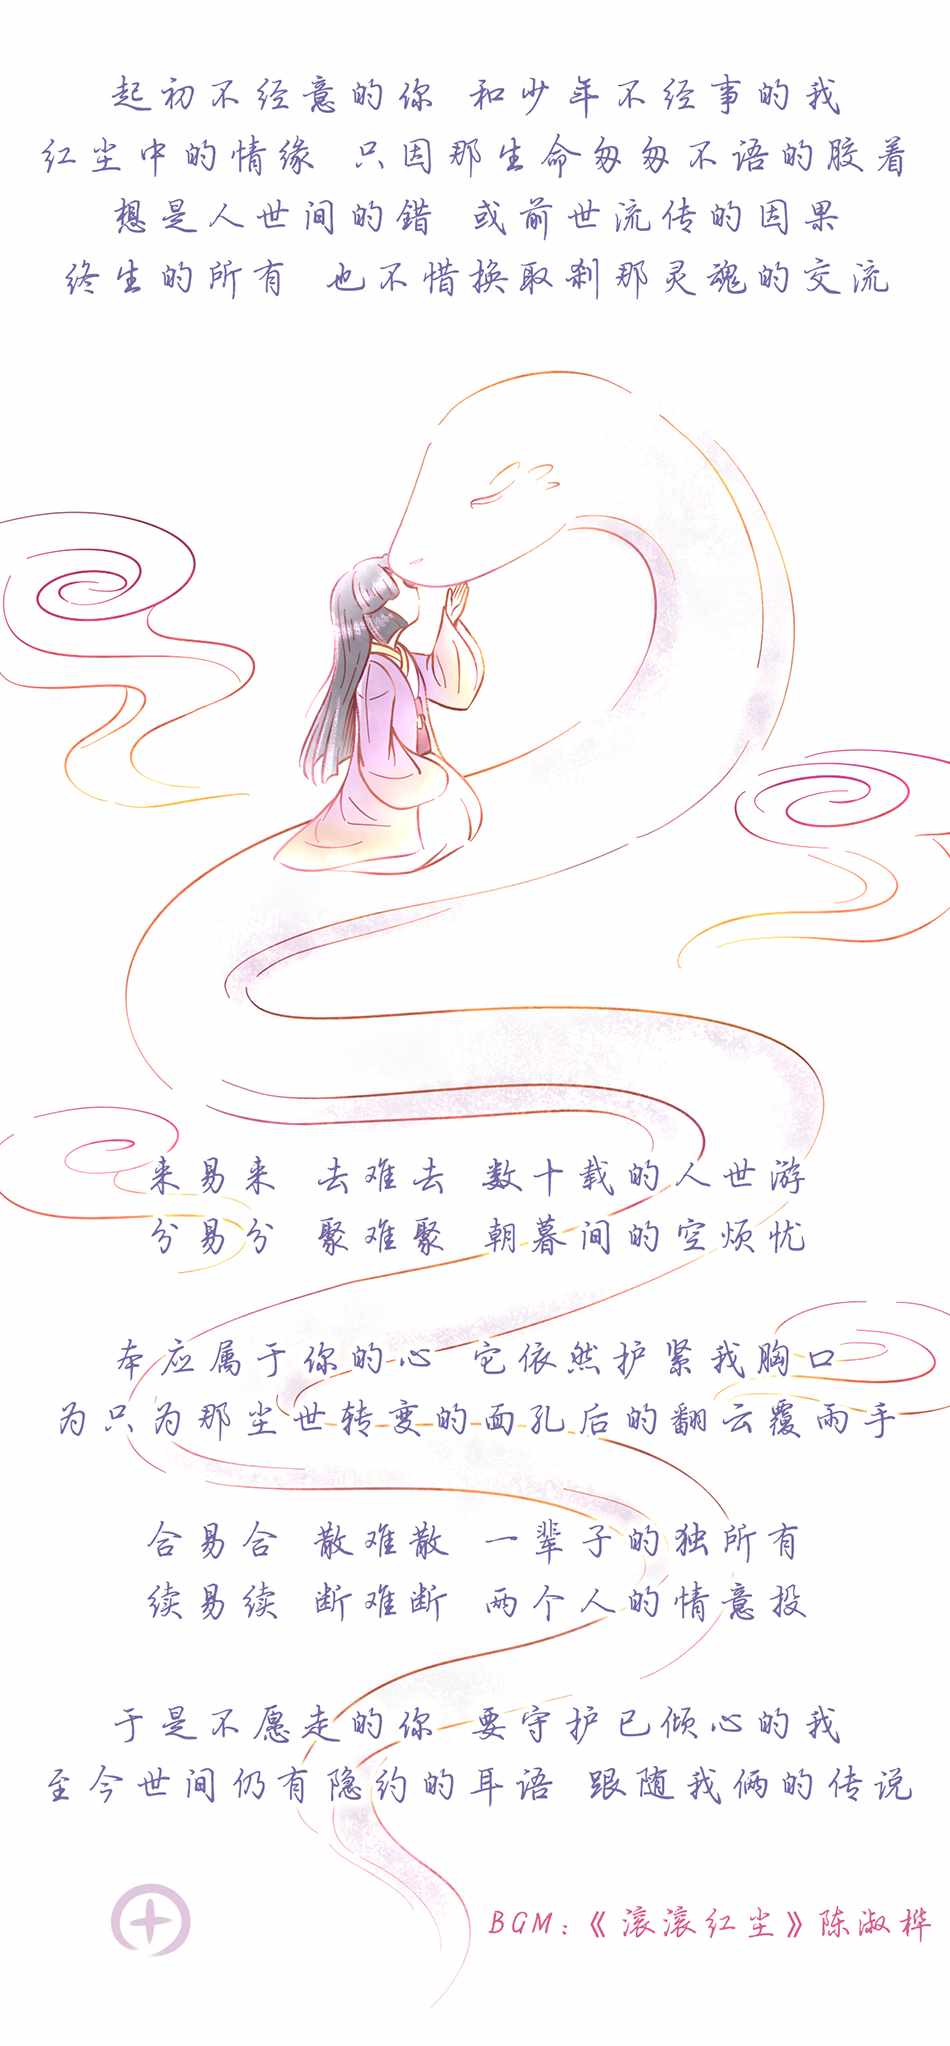 起初不经意的你 和少年不经事的我
红尘中的情缘 只因那生命匆匆不语的胶着
想是人世间的错 或前世流传的因果
终生的所有 也不惜换取刹那灵魂的交流
来易来 去难去 数十载的人世游
分易分 聚难聚 朝暮间的空烦忧
本应属于你的心 它依然护紧我胸口
为只为那尘世转变的面孔后的翻云覆雨手
合易合 散难散 一辈子的独所有
续易续 断难断 两个人的情意投
于是不愿走的你 要守护已倾心的我
至今世间仍有隐约的耳语 跟随我俩的传说
BGM:《滚滚红尘》陈淑桦